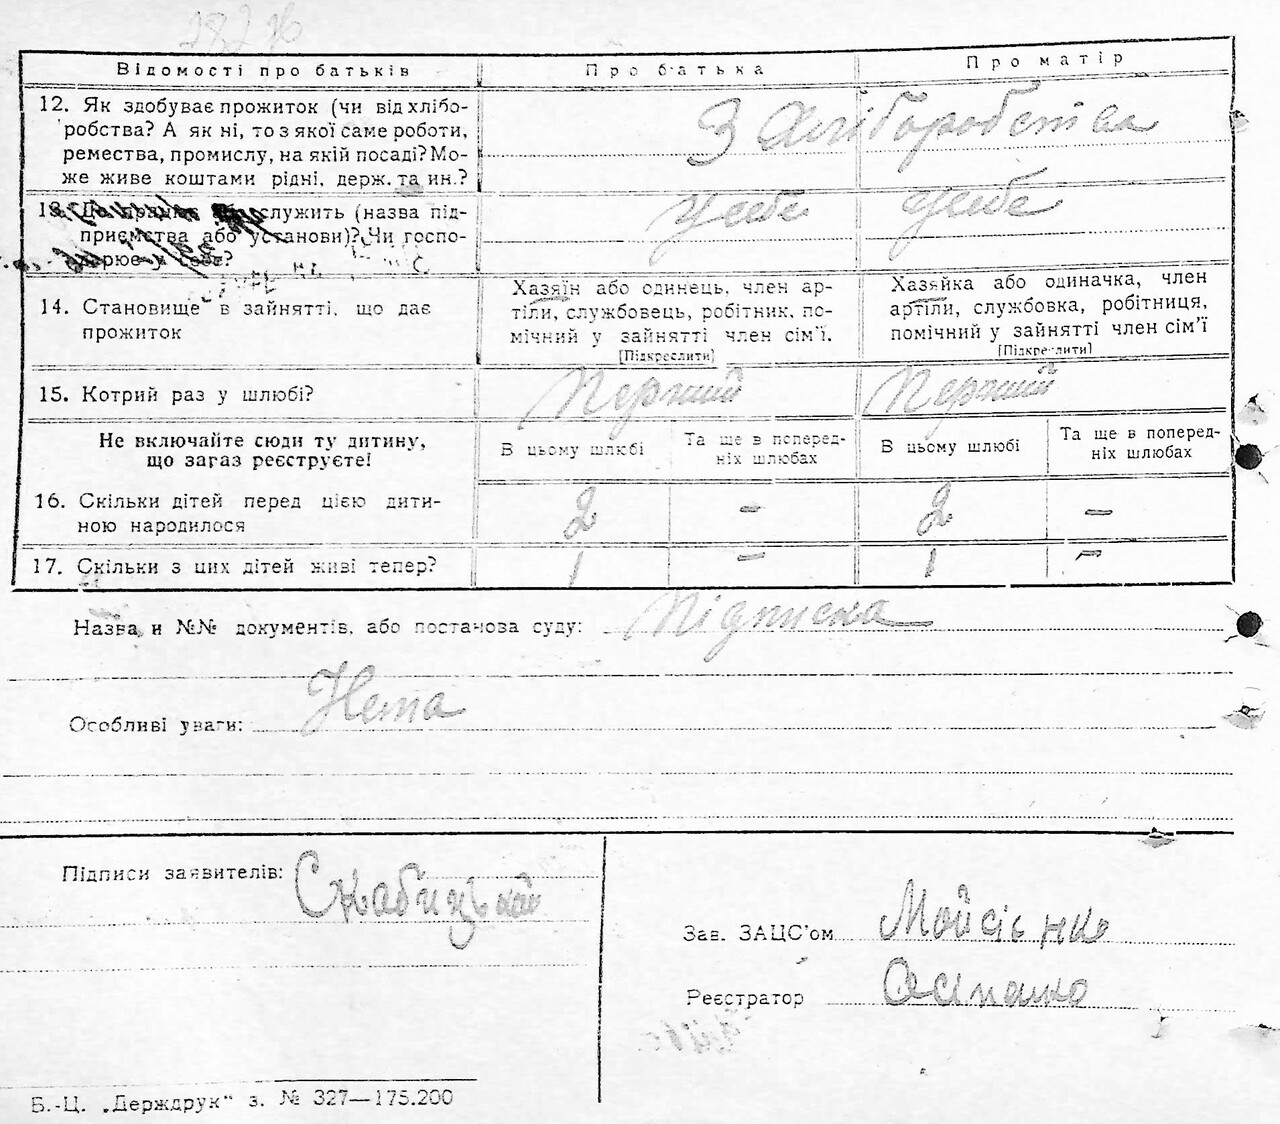 28276
Відомості про батьків Про батька Про матір
12. Як здобуває прожиток (чи від хлібо-
робства? А як ні, то з якої саме роботи,
ремества, промислу, на якій посаді? Мо-
же живе коштами рідні, держ. та ин.?
З хліборобства
13. Де працює або служить (назва під-
приємства або установи)? Чи госпо-
дарює у себе?
у себе у себе
14. Становище в зайнятті, що дає
прожиток
Хазяїн або одинець, член ар-
тіли, службовець, робітник, по-
мічний у зайнятті член сім'ї.
[Підкреслити]
Хазяйка або одиначка, член
артіли, службовка, робітниця,
помічний у зайнятті член сім'ї
[Підкреслити]
15. Котрий раз у шлюбі? Перший Перший
Не включайте сюди ту дитину,
що зараз реєструєте!
В цьому шлюбі Та ще в поперед-
ніх шлюбах В цьому шлюбі Та ще в поперед-
ніх шлюбах
16. Скільки дітей перед цією дити-
ною народилося 2 - 2 -
17. Скільки з цих дітей живі тепер? 1 - 1 -
Назва и №№ документів, або постанова суду: Підписка
Особливі уваги: Нема
Підписи заявителів: Скабицький
Зав. ЗАЦС'ом Мойсієнко
Реєстратор
Б.-Ц. „Держдрук" з. № 327—175.200